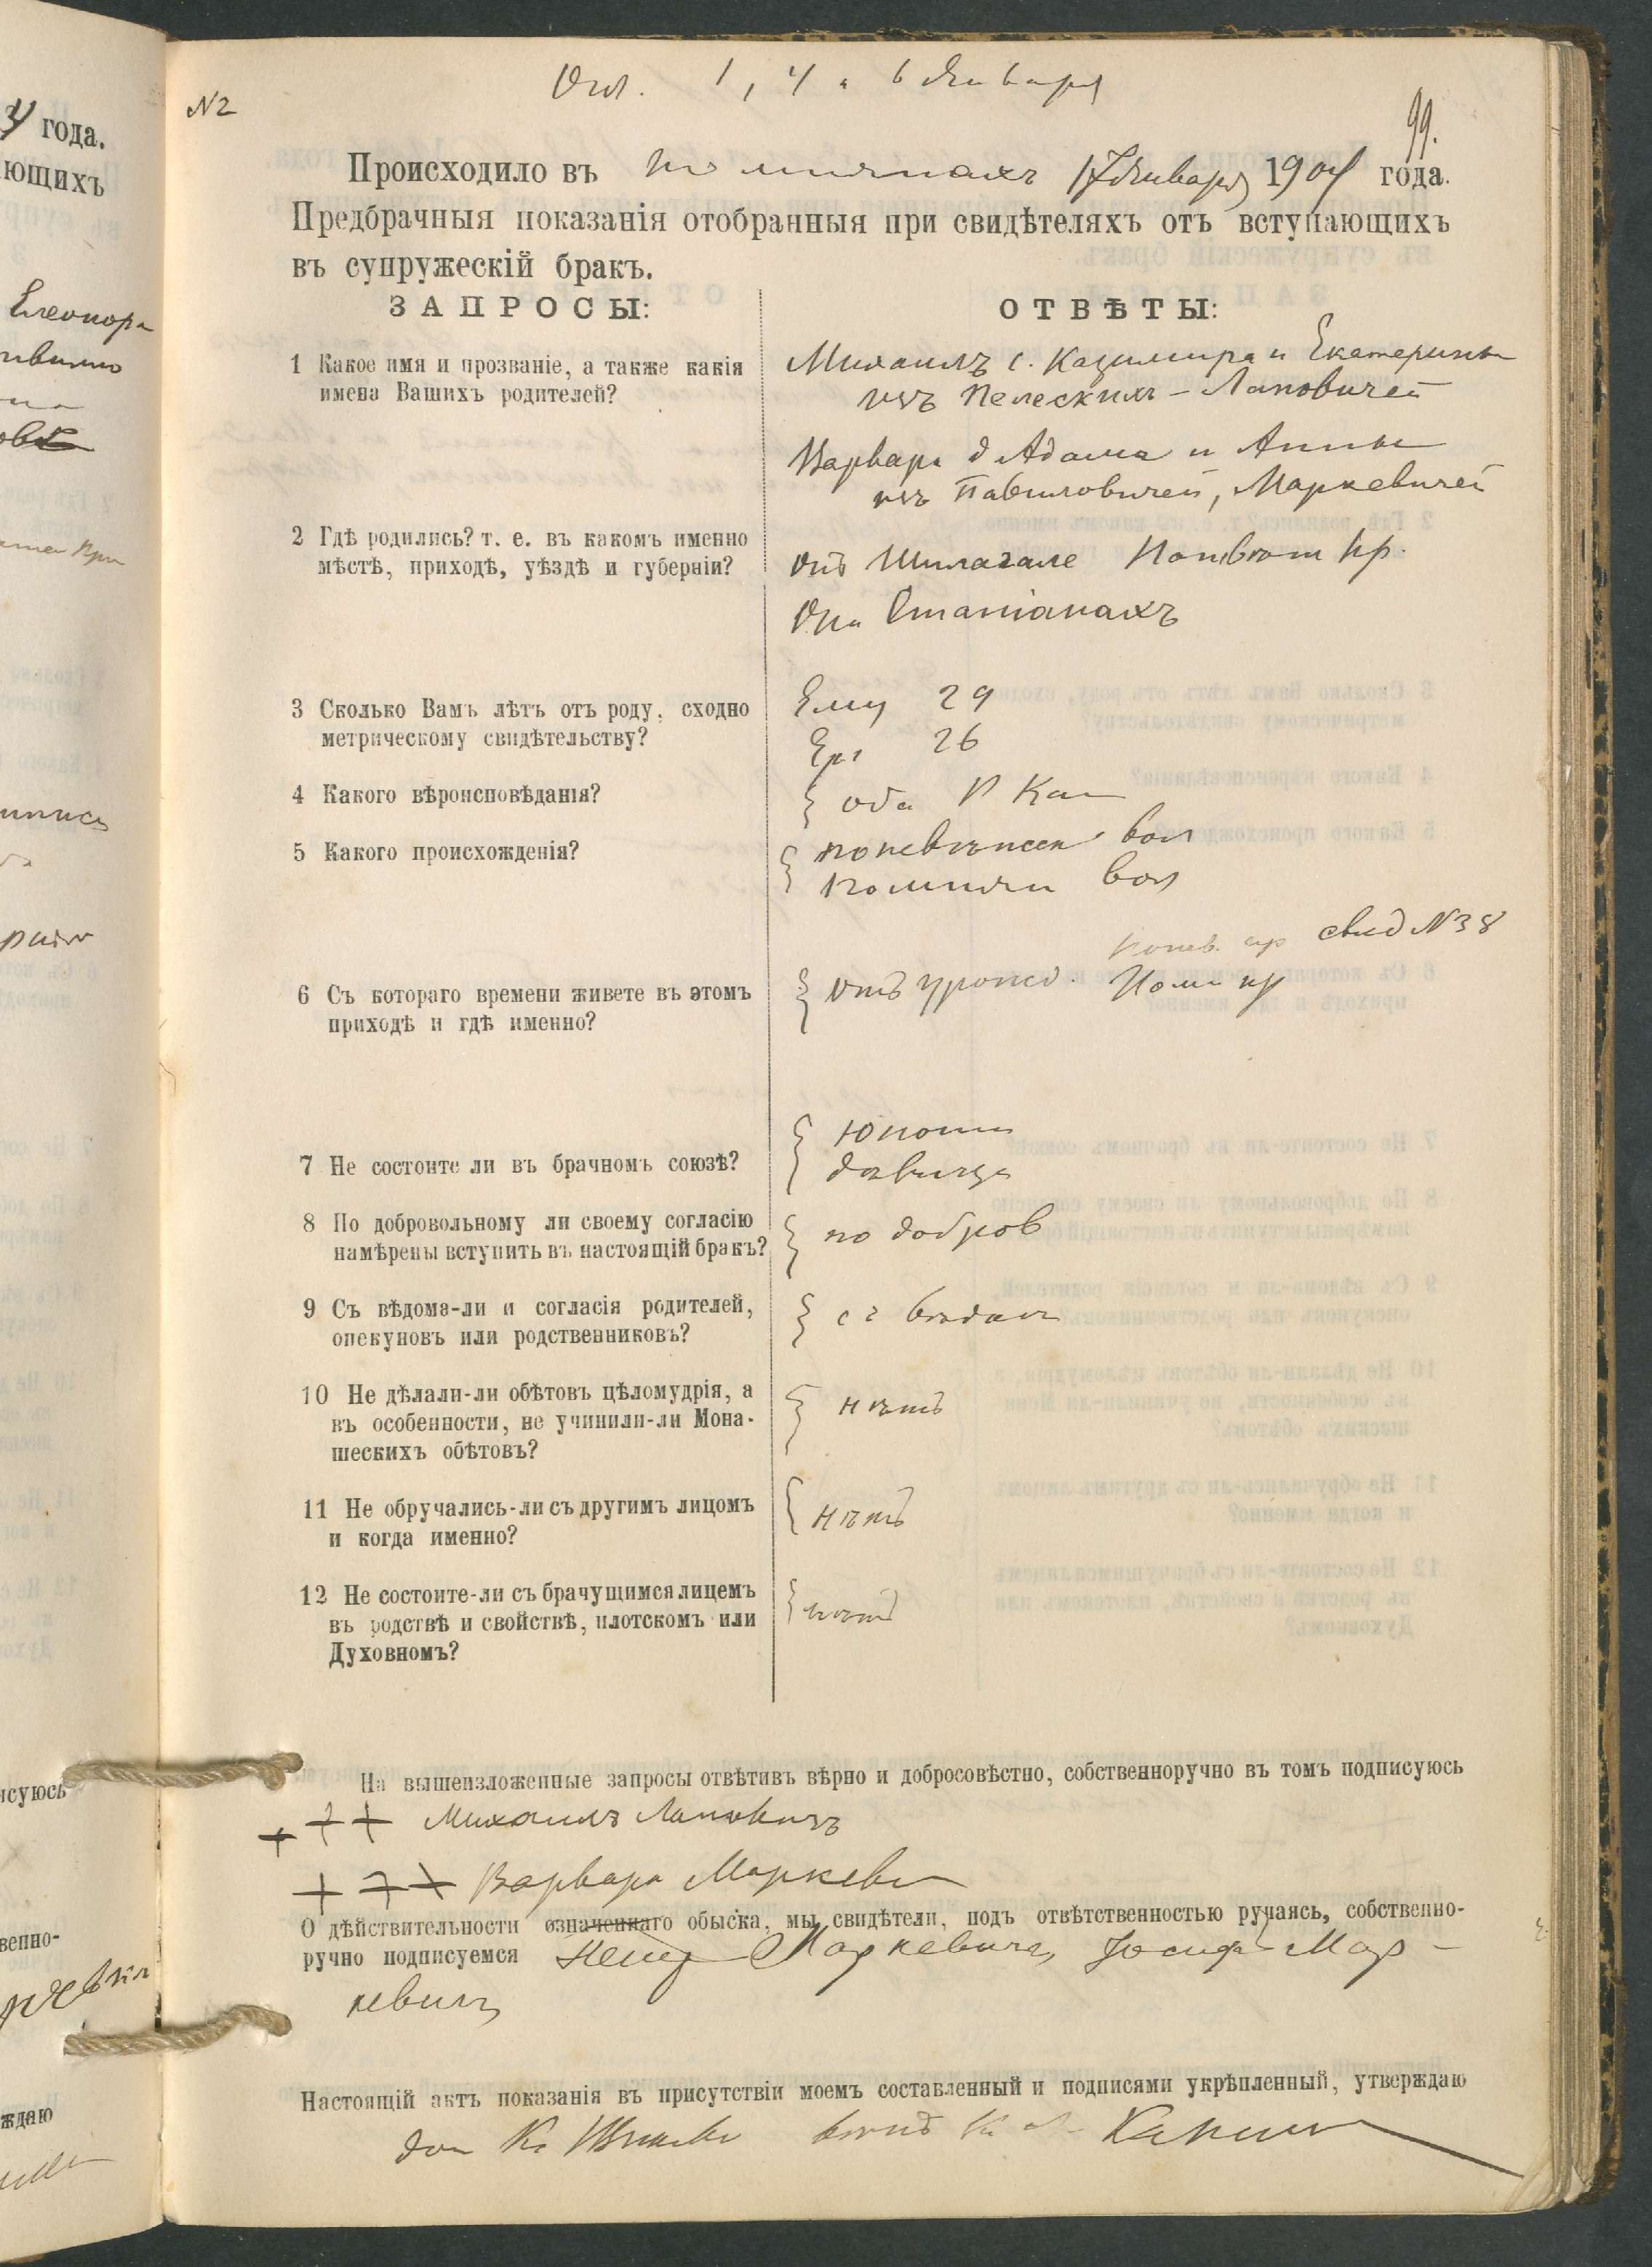 4 года.
ющихъ
Елеонора
№2
Огл. 1, 4 и 6 Января
99.
Происходило въ 17 Января 1904 года.
Предбрачныя показанія отобранныя при свидѣтеляхъ отъ вступающихъ
въ супружескій бракъ.
ЗАПРОСЫ:
ОТВѢТЫ:
1 Какое имя и прозваніе, а также какія
имена Вашихъ родителей?
Михаилъ с. Казимира и Екатерины
изъ Пелескихъ - Лаповичей
Варвара д Адама и Анны
изъ Павиловичей, Маркевичей
2 Гдѣ родились? т. е. въ какомъ именно
мѣстѣ, приходѣ, уѣздѣ и губерніи?
Онъ Шилагале пр.
Она Стапіанахъ
3 Сколько Вамъ лѣтъ отъ роду, сходно
метрическому свидѣтельству?
Ему 29
Ей 26
4 Какого вѣроисповѣданія?
оба Р Кат
5 Какого происхожденія?
поневѣжск вол
помпян вол
6 Съ котораго времени живете въ этомъ
приходѣ и гдѣ именно?
понев. пр свид №38
Отъ урожд. Помп пр
7 Не состоите ли въ брачномъ союзѣ?
Юноша
дѣвица
8 По добровольному ли своему согласію
намѣрены вступить въ настоящій бракъ?
по добров
9 Съ вѣдома-ли и согласія родителей,
опекуновъ или родственниковъ?
съ вѣдома
10 Не дѣлали-ли обѣтовъ цѣломудрія, а
въ особенности, не учинили-ли Мона-
шескихъ обѣтовъ?
нѣтъ
11 Не обручались-ли съ другимъ лицомъ
и когда именно?
нѣтъ
12 Не состоите-ли съ брачущимся лицемъ
въ родствѣ и свойствѣ, плотскомъ или
Духовномъ?
нѣтъ
На вышеизложенные запросы отвѣтивъ вѣрно и добросовѣстно, собственноручно въ томъ подписуюсь
+ + + Михаилъ Лаповичъ
+ + + Варвара Маркеви
О дѣйствительности означеннаго обыска, мы свидѣтели, подъ отвѣтственностью ручаясь, собственно-
ручно подписуемся Маркевичъ, Іосифъ Мар-
кевичъ
Настоящій актъ показанія въ присутствіи моемъ составленный и подписями укрѣпленный, утверждаю
исуюсь
венно-
ждаю